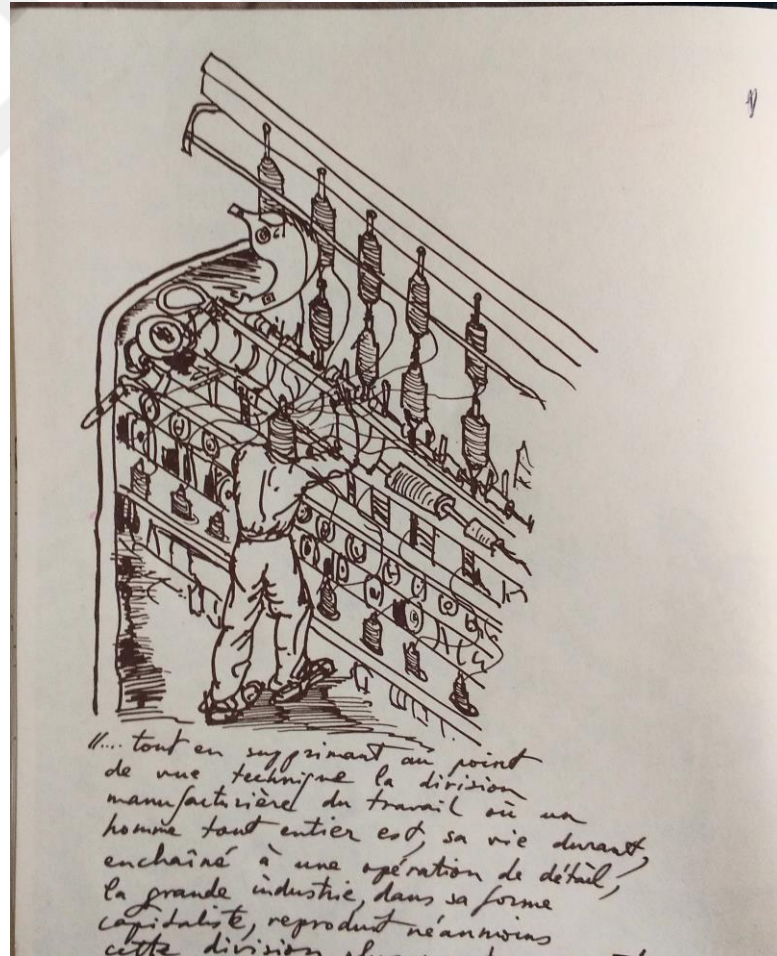 "... tout en supprimant au point
de vue technique la division
manufacturière du travail où un
homme tout entier est, sa vie durant,
enchaîné à une opération de détail,
la grande industrie, dans sa forme
capitaliste, reproduit néanmoins
cette division